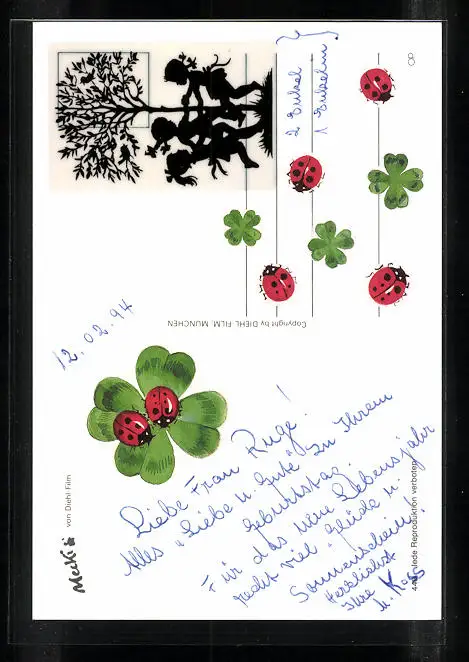 2 Enkel
1 Enkelin
OP
Copyright by DIEHL-FILM, MÜNCHEN
12.02.94
Liebe Frau Ruge!
Alles "Liebe u. Gute" zu Ihrem
Geburtstag.
Für das neue Lebensjahr
recht viel "Glück" u.
Sonnenschein!
Herzlichst
Ihre
Mecki von Diehl Film
Jede Reproduktion verboten